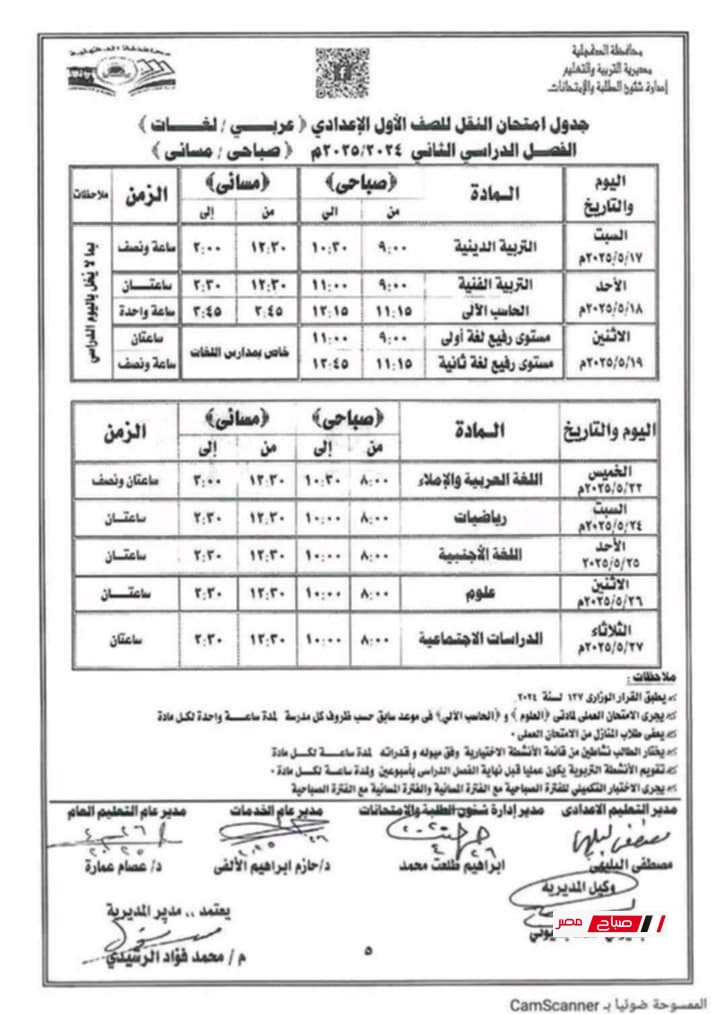 محافظة الدقهلية
مديرية التربية والتعليم
إدارة شئون الطلبة والإمتحانات
جدول امتحان النقل للصف الأول الإعدادي ( عربي / لغات )
الفصل الدراسي الثاني ٢٠٢٥/٢٠٢٤م ( صباحى / مسائى )
اليوم والتاريخ المادة (صباحى) (مسائى) الزمن ملاحظات
من إلى من إلى
السبت ٢٠٢٥/٥/١٧م التربية الدينية ٩:٠٠ ١٠:٣٠ ١٢:٣٠ ٢:٠٠ ساعة ونصف
الأحد ٢٠٢٥/٥/١٨م التربية الفنية ٩:٠٠ ١١:٠٠ ١٢:٣٠ ٢:٣٠ ساعتان
الحاسب الألى ١١:١٥ ١٢:١٥ ٢:٤٥ ٣:٤٥ ساعة واحدة
الاثنين ٢٠٢٥/٥/١٩م مستوى رفيع لغة أولى ٩:٠٠ ١١:٠٠ خاص بمدارس اللغات ساعتان
مستوى رفيع لغة ثانية ١١:١٥ ١٢:٤٥ ساعة ونصف
بما لا يُخل باليوم الدراسي
اليوم والتاريخ المادة (صباحى) (مسائى) الزمن
من إلى من إلى
الخميس ٢٠٢٥/٥/٢٢م اللغة العربية والإملاء ٨:٠٠ ١٠:٣٠ ١٢:٣٠ ٣:٠٠ ساعتان ونصف
السبت ٢٠٢٥/٥/٢٤م رياضيات ٨:٠٠ ١٠:٠٠ ١٢:٣٠ ٢:٣٠ ساعتان
الأحد ٢٠٢٥/٥/٢٥ اللغة الأجنبية ٨:٠٠ ١٠:٠٠ ١٢:٣٠ ٢:٣٠ ساعتان
الاثنين ٢٠٢٥/٥/٢٦م علوم ٨:٠٠ ١٠:٠٠ ١٢:٣٠ ٢:٣٠ ساعتان
الثلاثاء ٢٠٢٥/٥/٢٧م الدراسات الاجتماعية ٨:٠٠ ١٠:٠٠ ١٢:٣٠ ٢:٣٠ ساعتان
ملاحظات :
يطبق القرار الوزارى ١٣٧ لسنة ٢٠٢٤
يجرى الامتحان العملى لمادتى (العلوم) و (الحاسب الآلي) فى موعد سابق حسب ظروف كل مدرسة لمدة ساعة واحدة لكل مادة
يعفى طلاب المنازل من الامتحان العملى
يختار الطالب نشاطين من قائمة الأنشطة الاختيارية وفق ميوله و قدراته لمدة ساعة لكل مادة
تقويم الأنشطة التربوية يكون عمليا قبل نهاية الفصل الدراسى بأسبوعين ولمدة ساعة لكل مادة
يجرى الاختبار التكميلى للفترة الصباحية مع الفترة المسائية والفترة المسائية مع الفترة الصباحية
مدير التعليم الاعدادى مدير إدارة شئون الطلبة والإمتحانات مدير عام الخدمات مدير عام التعليم العام
مصطفى البليهى ابراهيم طلعت محمد د/حازم ابراهيم الألفى د/ عصام عمارة
وكيل المديرية
يعتمد ،، مدير المديرية
م / محمد فؤاد الرشيدي
صباح مصر
٥
الممسوحة ضوئيا بـ CamScanner